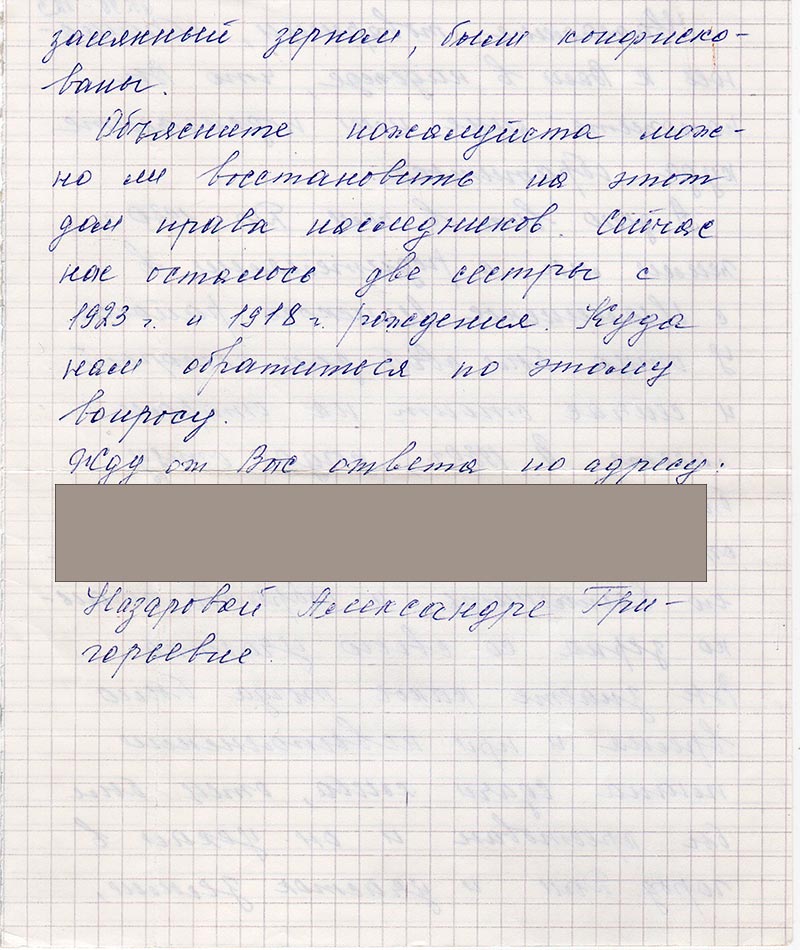 засеянный зерном, были конфиско-
ваны.
Объясните пожалуйста мож-
но ли восстановить на этот
дом права наследников. Сейчас
нас осталось две сестры с
1923 г. и 1918 г. рождения. Куда
нам обратиться по этому
вопросу.
Жду от Вас ответа по адресу:
Назаровой Александре Гри-
горьевне.